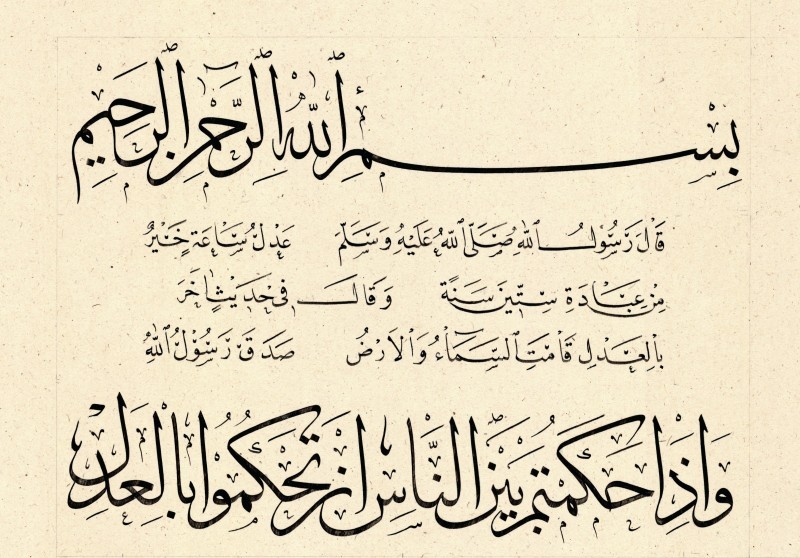 بِسْمِ اللهِ الرَّحْمٰنِ الرَّحِيمِ
قَالَ رَسُولُ اللهِ صَلَّى اللهُ عَلَيْهِ وَسَلَّمَ عَدْلُ سَاعَةٍ خَيْرٌ
مِنْ عِبَادَةِ سِتّينَ سَنَةً وَقَالَ فِى حَدِيثٍ اٰخَرَ
بِالْعَدْلِ قَامَتِ السَّمَاءُ وَالْاَرْضُ صَدَقَ رَسُولُ اللهِ
وَاِذَا حَكَمْتُمْ بَيْنَ النَّاسِ اَنْ تَحْكُمُوا بِالْعَدْلِ